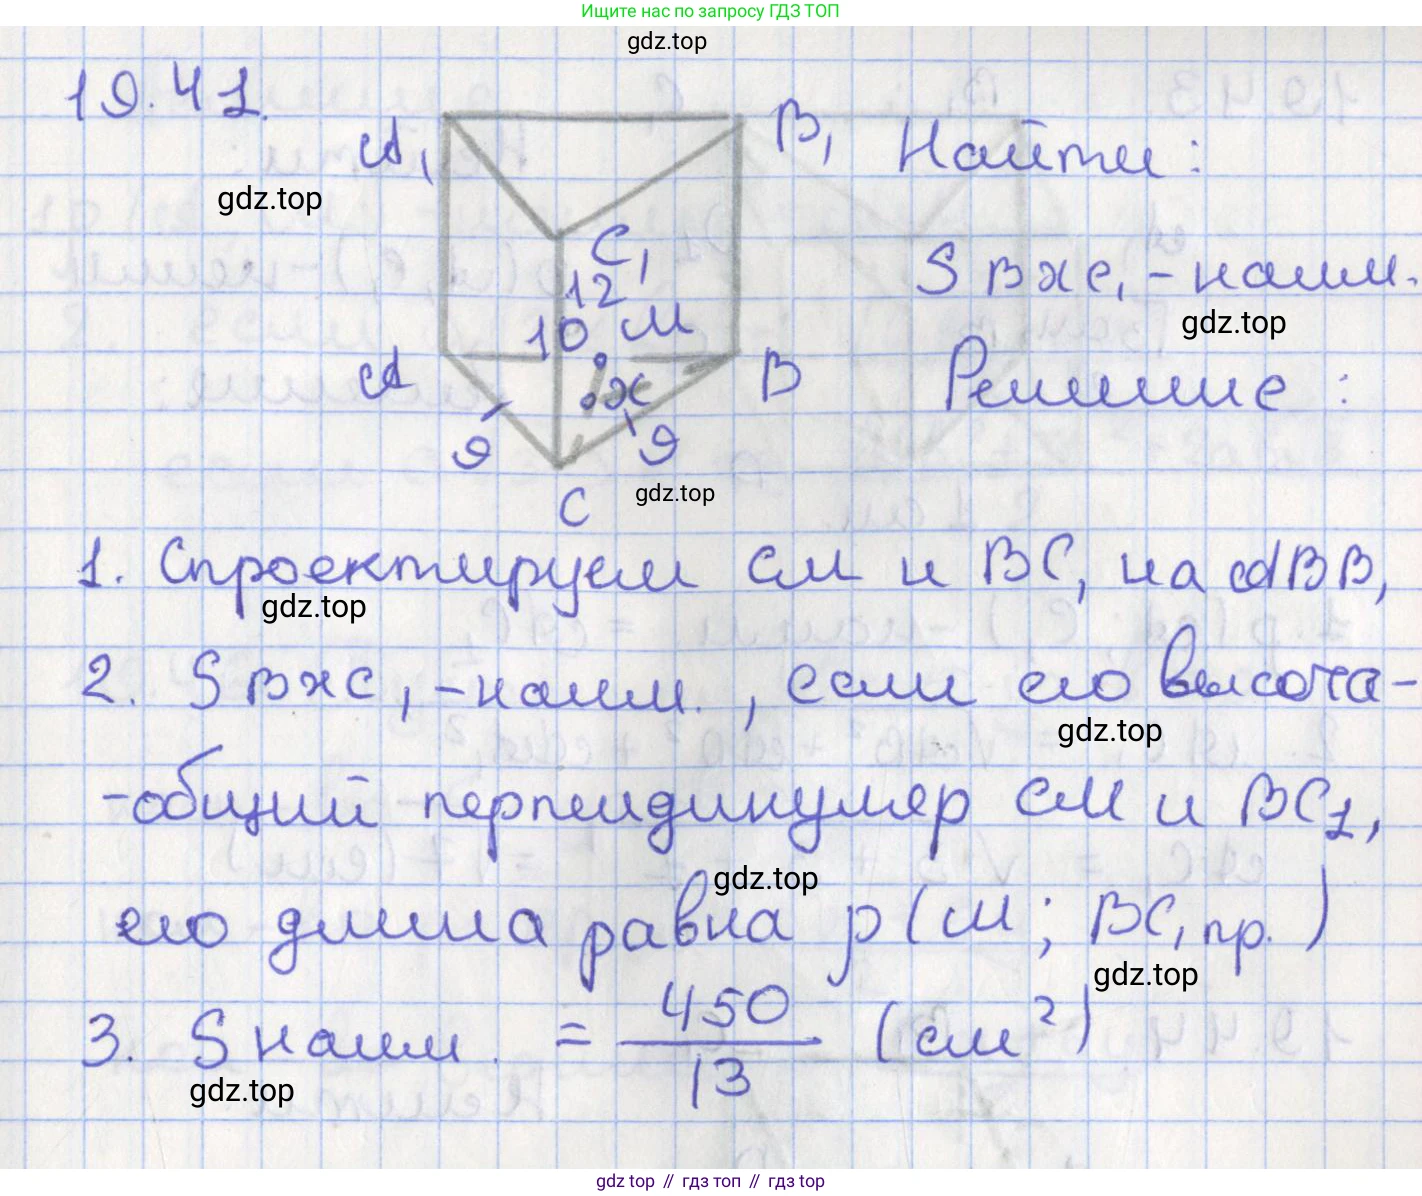 Ищите нас по запросу ГДЗ ТОП
gdz.top
19.41.
A₁
B₁
Найти:
gdz.top
C₁
12
S BXC₁ - наим.
gdz.top
10
M
A
X
B
Решение:
9
9
gdz.top
C
1. Спроектируем CM и BC₁ на ABB₁
gdz.top
2. S BXC₁ - наим., если его высота-
gdz.top
-общий перпендикуляр CM и BC₁,
gdz.top
его длина равна ρ(M; BC₁ пр.)
gdz.top
3. S наим. = 450/13 (см²)
gdz.top
gdz top // гдз топ // гдз top